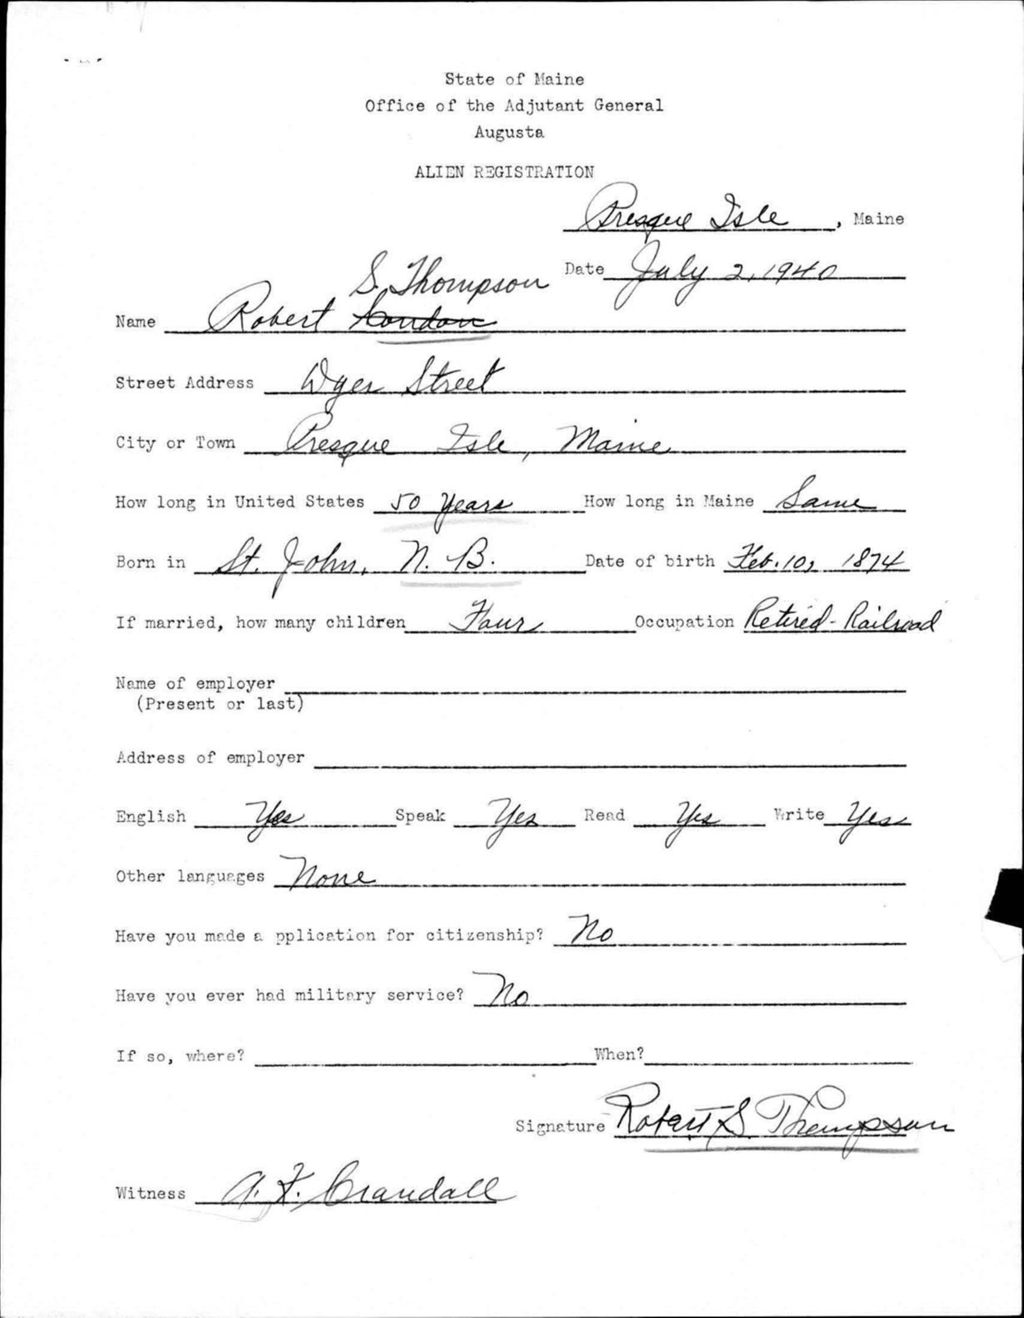 State of Maine
Office of the Adjutant General
Augusta
ALIEN REGISTRATION
Presque Isle, Maine
Date July 2, 1940
S. Thompson
Name Robert London
Street Address Dyer Street
City or Town Presque Isle, Maine
How long in United States 50 years How long in Maine Same
Born in St. John, N. B. Date of birth Feb. 10, 1874
If married, how many children Four Occupation Retired - Railroad
Name of employer
(Present or last)
Address of employer
English Yes Speak Yes Read Yes Write Yes
Other languages None
Have you made a pplication for citizenship? No
Have you ever had military service? No
If so, where? When?
Signature Robert S Thompson
Witness A. F. Crandall